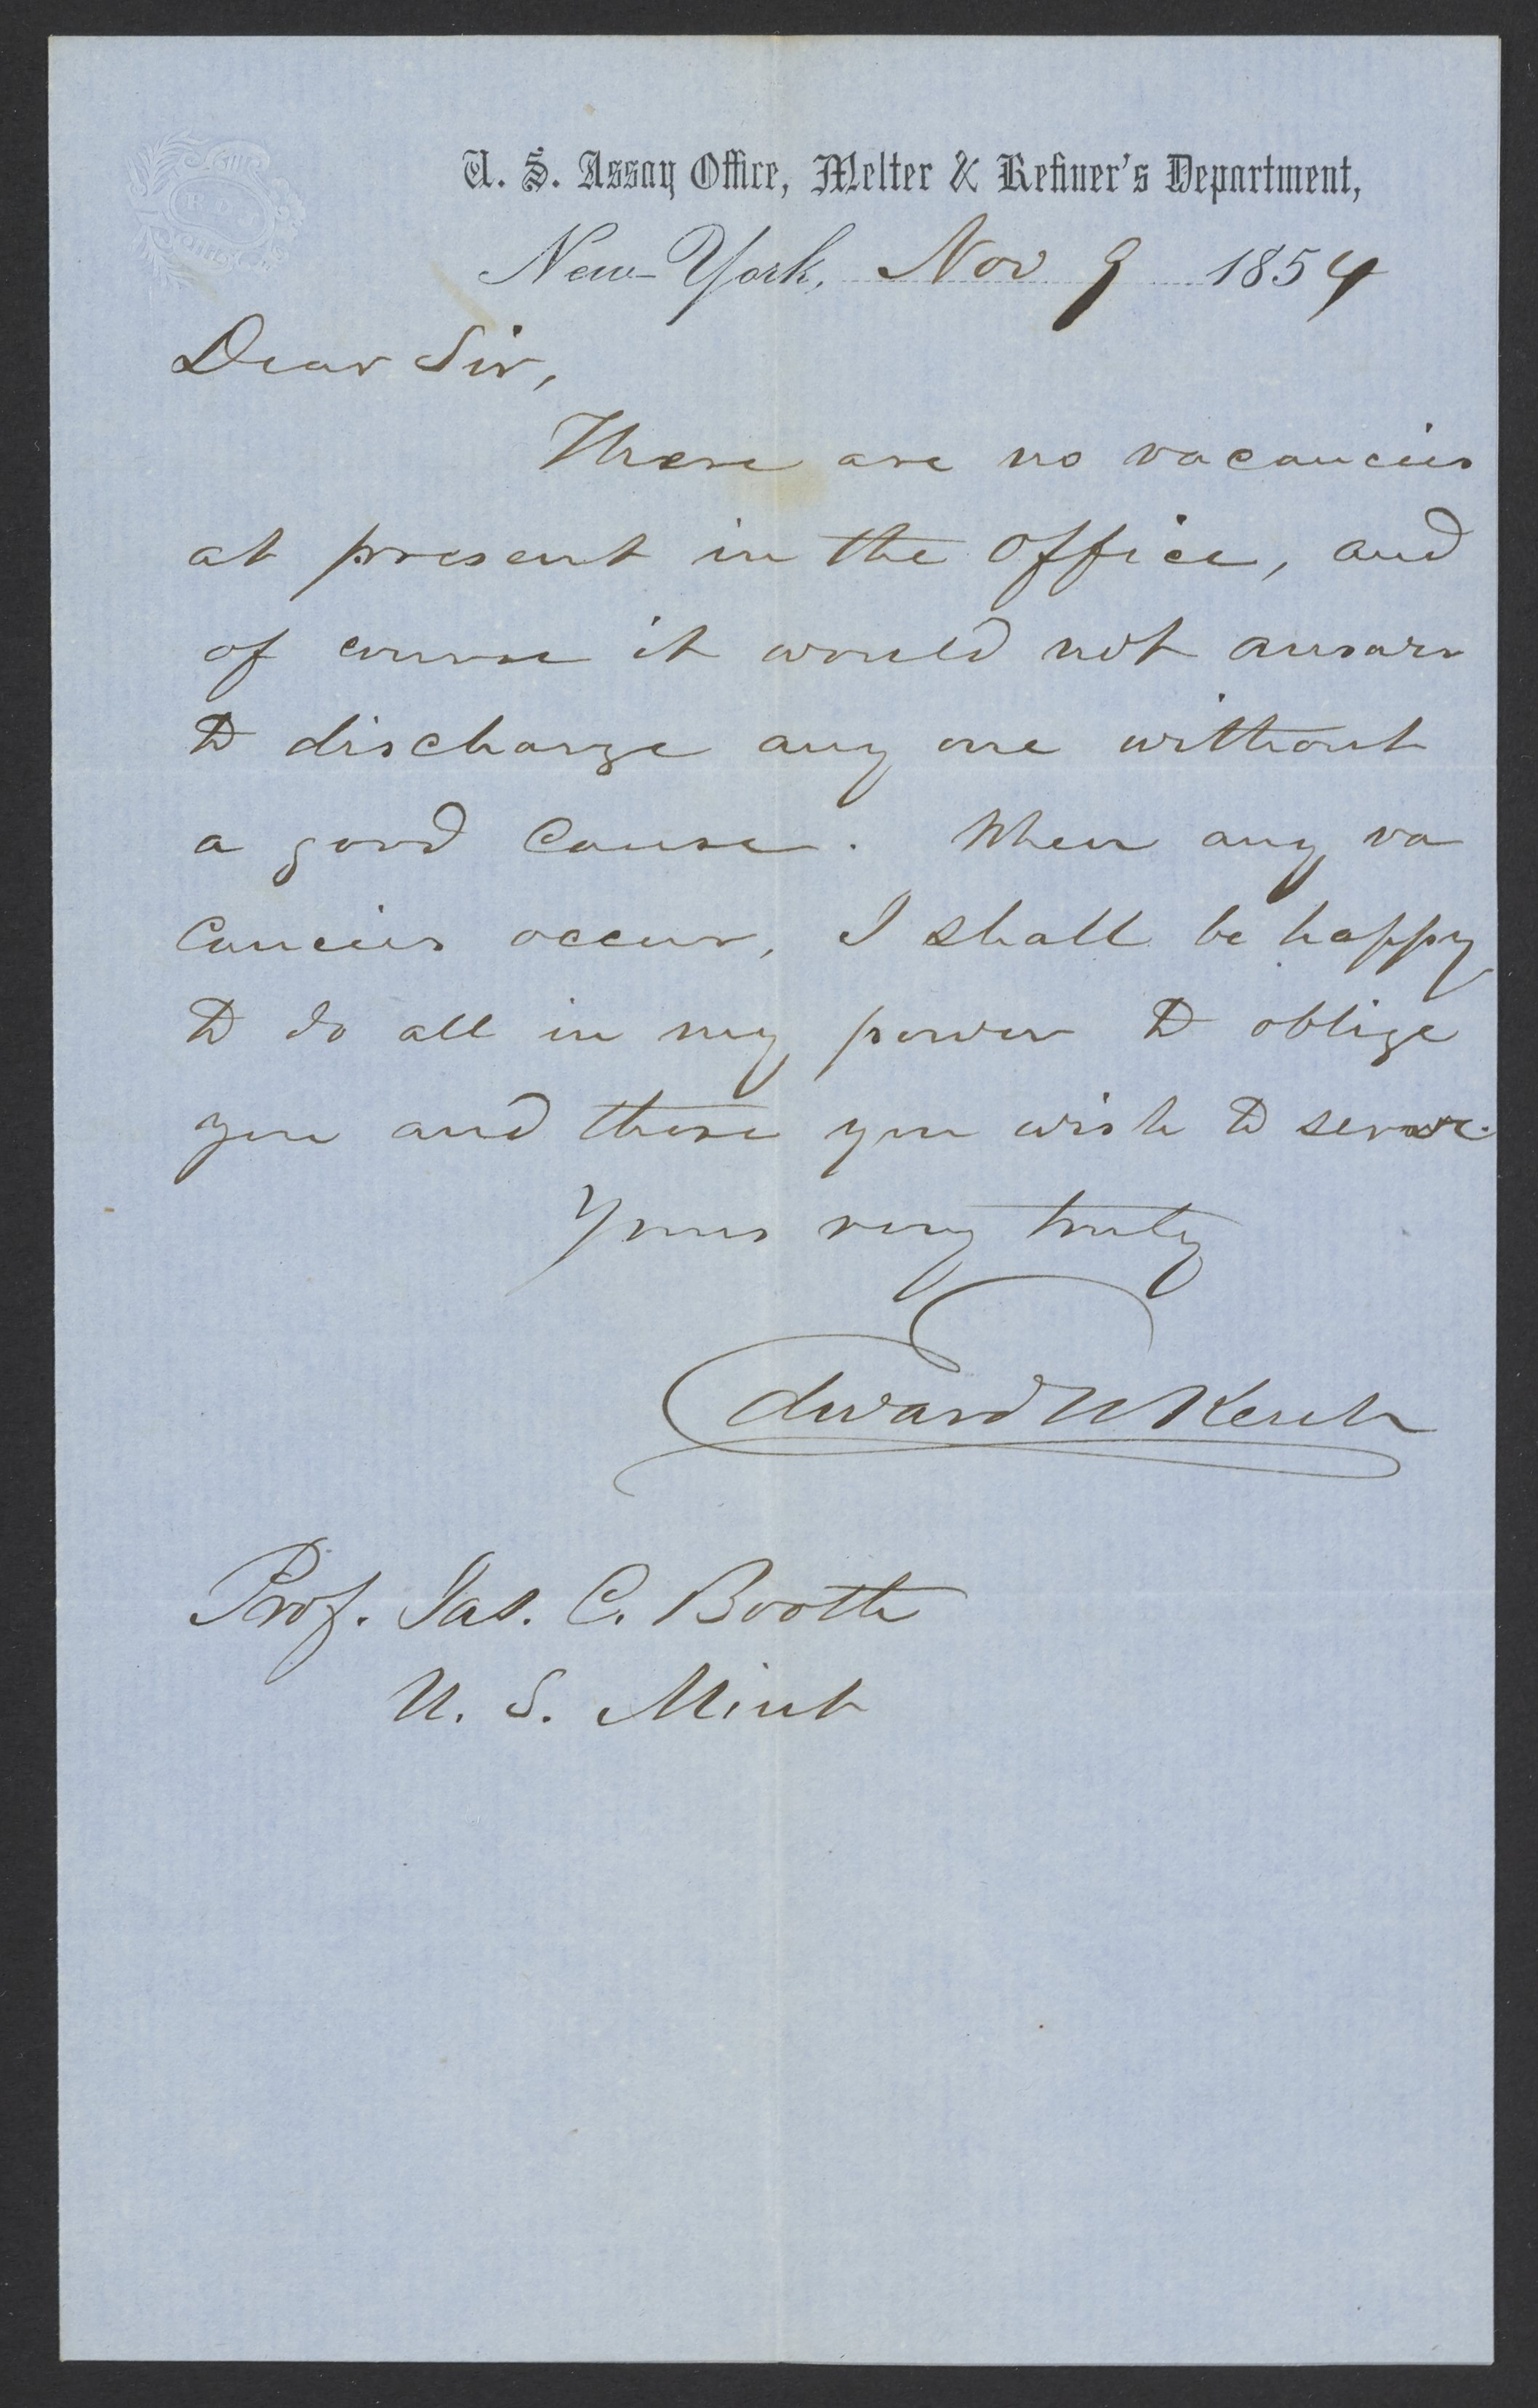 U. S. Assay Office, Melter & Refiner's Department,
New-York, Nov 9 1854
Dear Sir,
There are no vacancies
at present in the office, and
of course it would not answer
to discharge any one without
a good cause. When any va
cancies occur, I shall be happy
to do all in my power to oblige
you and those you wish to serve.
Yours very truly
Edward N Kent
Prof. Jas. C. Booth
U. S. Mint